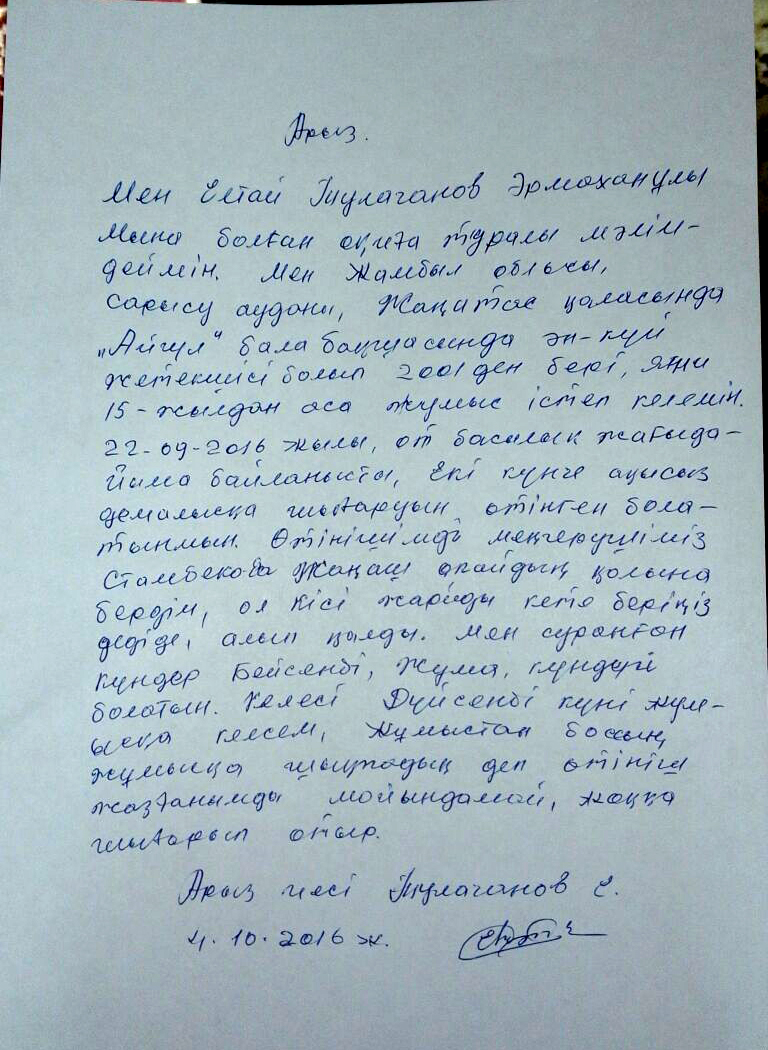 Арыз.
Мен Елтай Тулаганов Эрмаханұлы
мына болған оқиға туралы мәлім-
деймін. Мен Жамбыл облысы,
сарысу ауданы, Жаңатас қаласында
„Айгул" бала бақшасында ән-күй
жетекшісі болып 2001 ден бері, яғни
15-жылдан аса жұмыс істеп келемін.
22-09-2016 жылы, от басылық жағыда-
йыма байланысты, екі күнге ақысыз
демалысқа шығаруын өтінген бола-
тынмын. Өтінішімді меңгерушіміз
Стамбекова Жаңаш апайдың қолына
бердім, ол кісі жарйды кете беріңіз
дедіде, алып қалды. Мен сұранған
күндер Бейсенбі, Жума, күндері
болатын. Келесі Дүйсенбі күні жұм-
ысқа келсем, жұмыстан босың
жұмысқа шықпадың деп өтініш
жазғанымды мойындамай, жоққа
шығарып отыр.
Арыз иесі Тулаганов Е.
4.10.2016 ж.